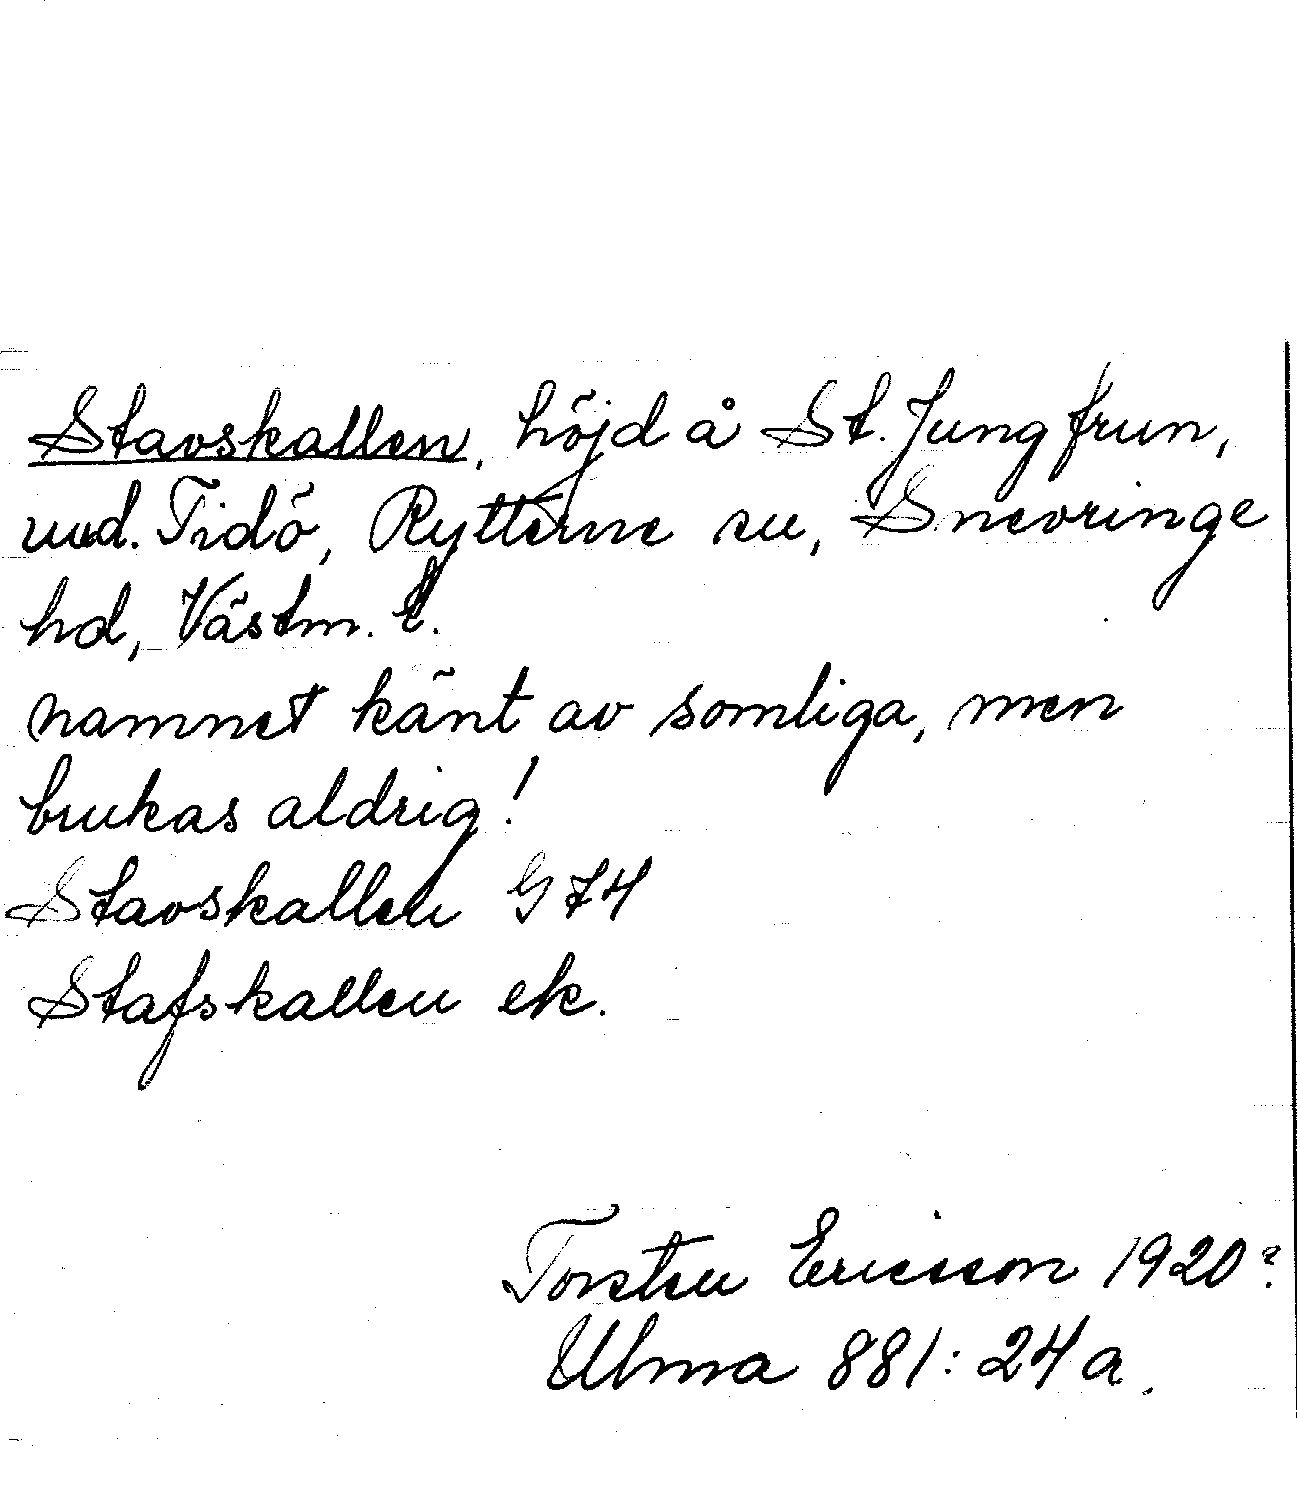 Stavskallen, höjd å St. Jungfrun,
und. Tidö, Rytterne sn, Snevringe
hd, Västm. l.
namnet känt av somliga, men
brukas aldrig!
Stavskallen G 74
Stafskallen ek.
Torsten Ericsson 1920?
Ulma 881:24a.